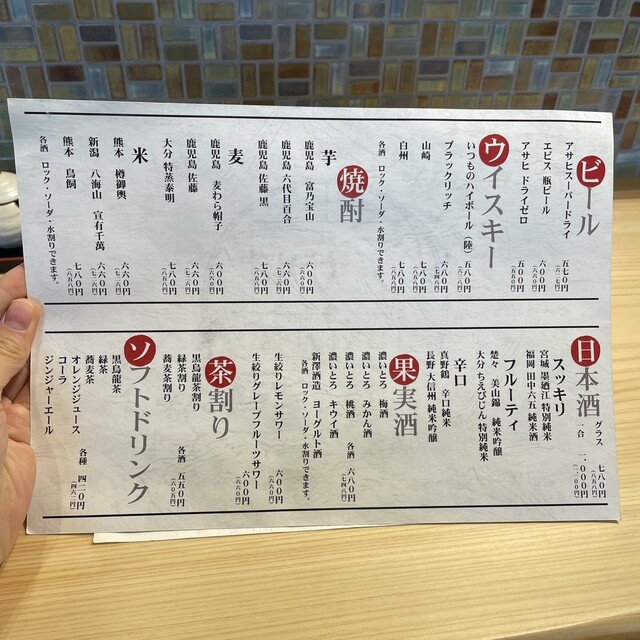 ビール
アサヒスーパードライ 五七〇円
エビス 瓶ビール 六〇〇円
アサヒ ドライゼロ 五〇〇円
ウイスキー
いつものハイボール（陸） 五八〇円
ブラックリッチ 六八〇円
山崎 七八〇円
白州 七八〇円
各酒 ロック・ソーダ・水割りできます。
焼酎
芋
鹿児島 富乃宝山 六〇〇円
鹿児島 六代目百合 六六〇円
鹿児島 佐藤 黒 七八〇円
麦
鹿児島 麦わら帽子 六六〇円
鹿児島 佐藤 六六〇円
大分 特蒸泰明 七八〇円
米
熊本 樽御輿 六六〇円
新潟 八海山 宜有千萬 六六〇円
熊本 鳥飼 七八〇円
各酒 ロック・ソーダ・水割りできます。
日本酒
グラス 七八〇円（八五八円）
一合 一、〇〇〇円（一、一〇〇円）
スッキリ
宮城 墨廼江 特別純米
福岡 田中六五 純米酒
フルーティ
楚々 美山錦 純米吟醸
大分 ちえびじん 特別純米
辛口
真野鶴 辛口純米
長野 大信州 純米吟醸
果実酒
濃いとろ 梅酒
濃いとろ みかん酒
濃いとろ 桃酒 各酒 六八〇円（七四八円）
濃いとろ キウイ酒
新澤酒造 ヨーグルト酒
各酒 ロック・ソーダ・水割りできます。
生絞りレモンサワー 六〇〇円（六六〇円）
生絞りグレープフルーツサワー 六〇〇円（六六〇円）
茶割り
黒烏龍茶割り
緑茶割り 各酒 五五〇円（六〇五円）
蕎麦茶割り
ソフトドリンク
黒烏龍茶
緑茶
蕎麦茶
オレンジジュース 各種 四二〇円（四六二円）
コーラ
ジンジャーエール